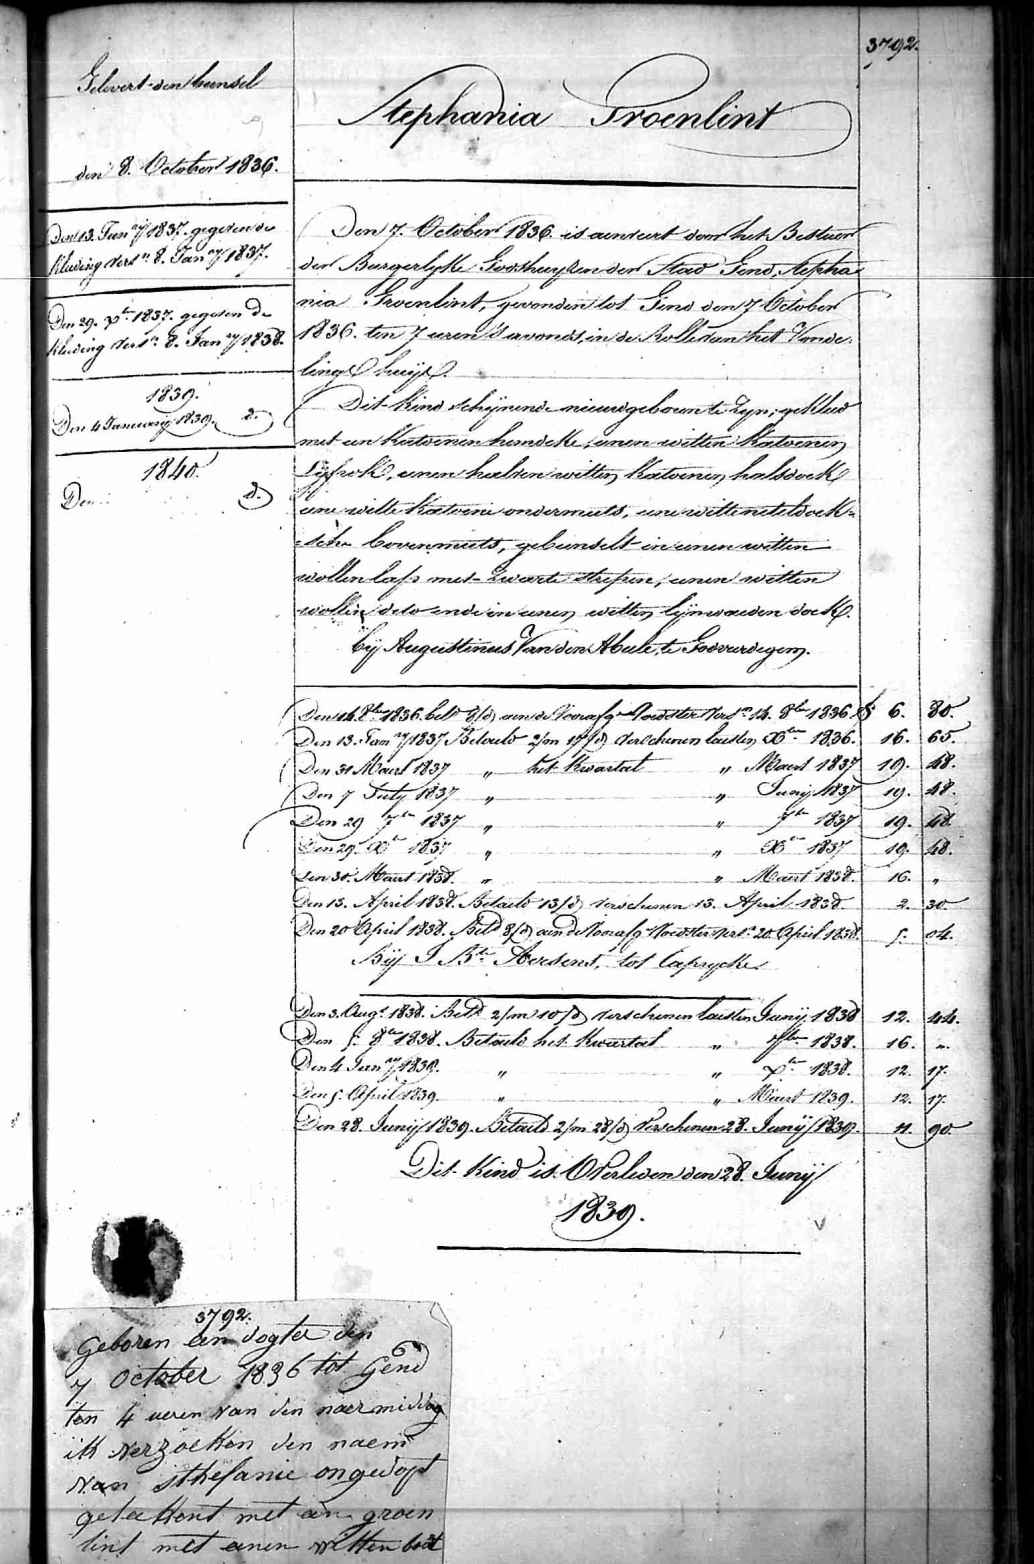 3792.
Gelevert den bunsel
den 8. October 1836.
Den 13. Jan.ry 1837. gegeven de
kleeding vers.n 8. Jan.ry 1837.
Den 29. x.r 1837. gegeven de
kleeding vers.n 8. Jan.ry 1838.
1839.
Den 4 January 1839. d.
1840.
Den d.
Stephania Groenlint
Den 7. October 1836 is aenveert door het Bestuer
der Burgerlyke Godshuyzen der Stad Gend, Stepha
nia Groenlint, gevonden tot Gend den 7 October
1836. ten 7 uren 's avonds, in de Rolle van het Vonde-
lings huijs.
Dit Kind schijnende nieuwgeboren te zyn, gekleed
met een katoenen hemdeke, eenen witten katoenen
Lyfrok, eenen halven witten katoenen halsdoek
eene witte katoene ondermuts, eene witte neteldoek-
sche bovenmuts, gebunselt in eenen witten
wollen lap met zwarte strepen, eenen witten
wollen dito ende in eenen witten lynwaeden doek.
bij Augustinus Van den Abeele, te Godveerdegem.
Den 14. 8.ber 1836. bet.d 8/d aen de Voorafg.e Voedster vers.n 14. 8.ber 1836. f 6. 80.
Den 13. Jan.ry 1837 Betaeld 2/m 17/d verschenen laetsten X.ber 1836. 16. 65.
Den 31 Maert 1837 „ het Kwartael „ Maert 1837 19. 48.
Den 7 July 1837 „ „ Junij 1837 19. 48.
Den 29 7.ber 1837 „ „ 7.ber 1837 19. 48.
Den 29. X.ber 1837 „ „ X.ber 1837 19. 48.
Den 31. Maert 1838. „ „ Maert 1838. 16. „
Den 13. April 1838. Betaeld 13/d verschenen 13. April 1838. 2. 30
Den 20 April 1838. Bet.d 8/d aen de Voorafg. Voedster vers.n 20 April 1838. 5. 04.
Bij J. B.te Aersens, tot Caprycke.
Den 3. Aug.t 1838. Bet.d 2/m 10/d verschenen laetsten Junij 1838 12. 44.
Den 5. 8.ber 1838. Betaeld het Kwartael „ 7.ber 1838. 16. „
Den 4 Jan.ry 1839. „ „ x.er 1838. 12. 17.
Den 5. April 1839. „ „ Maert 1839. 12. 17.
Den 28. Junij 1839. Betaeld 2/m 28/d verschenen 28. Junij 1839. 11. 90.
Dit Kind is Overleden den 28. Junij
1839.
3792.
geboren een dogter den
7 October 1836 tot Gend
ten 4 ueren van den naermiddag
ik verzoeken den naem
van sthefanie ongedopt
geteekent met een groen
lint met eenen witten